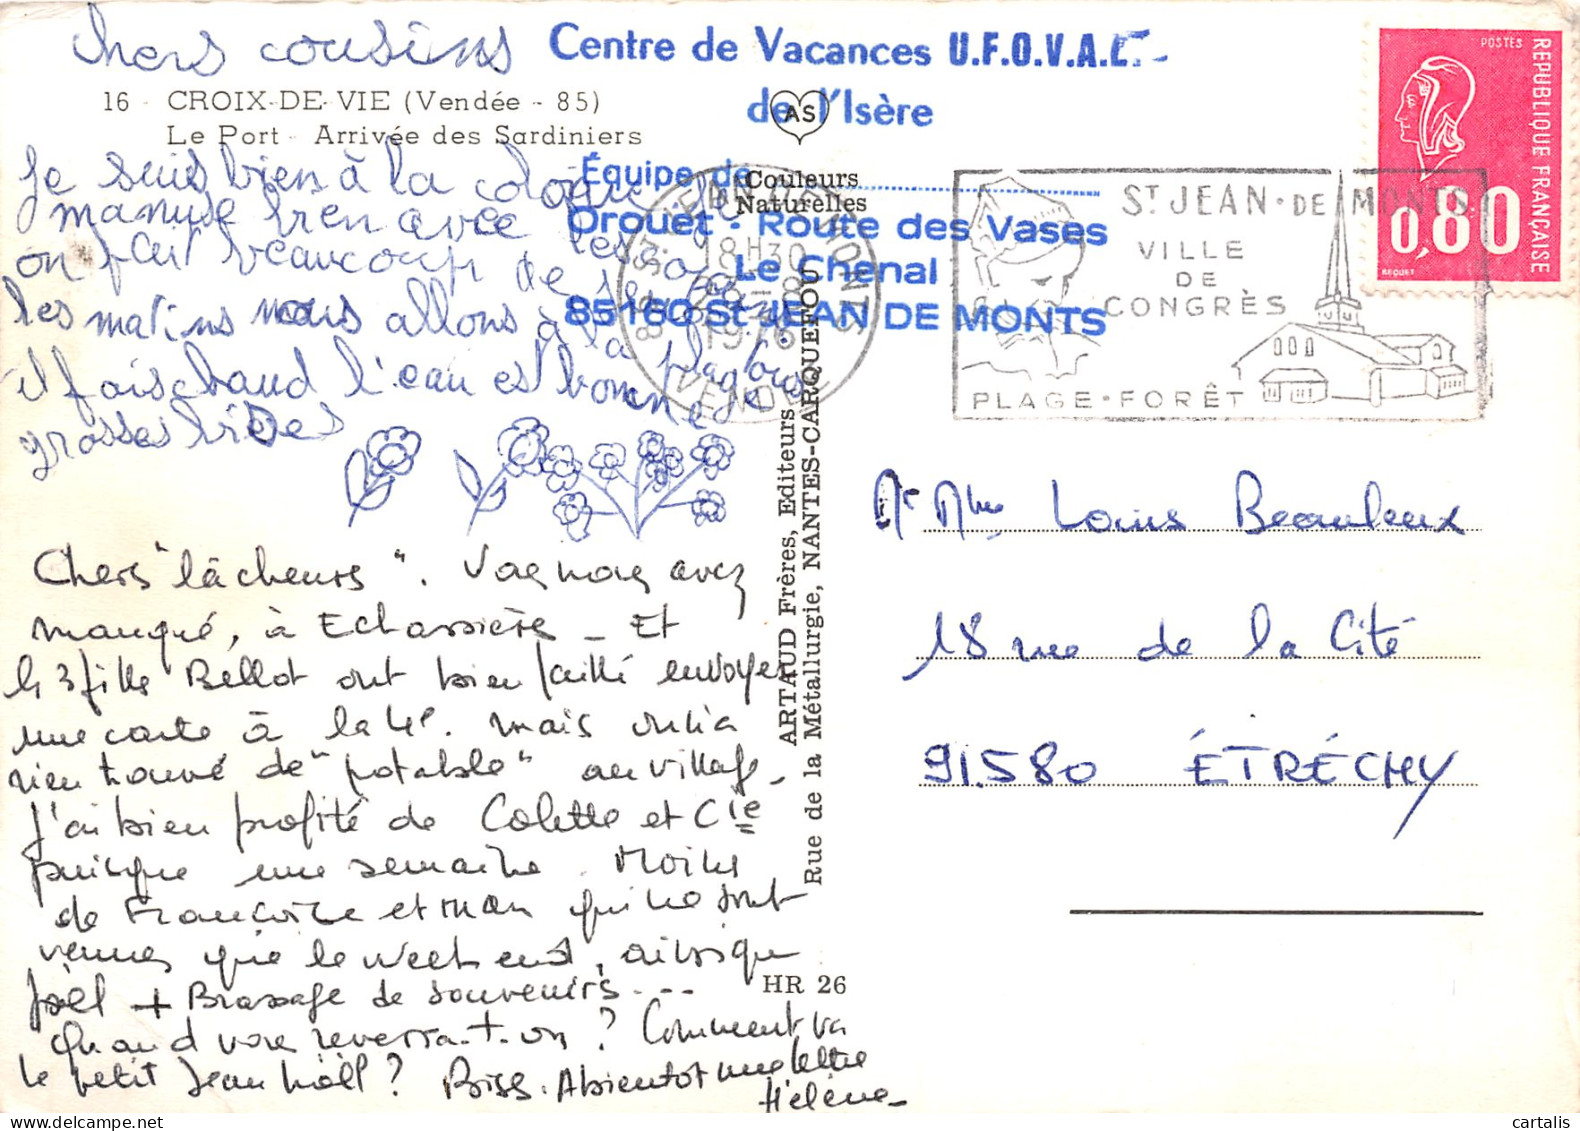 chers cousins
Centre de Vacances U.F.O.V.A.L.
de l'Isère
16 - CROIX-DE-VIE (Vendée - 85)
Le Port - Arrivée des Sardiniers
AS
Couleurs
Naturelles
Équipe de
Orouet - Route des Vases
Le Chenal
85160 St JEAN DE MONTS
Je suis bien à la colonie je
mamuse bien avec les
on fait beaucoup de
les matins nous allons à la plage
il fais chaud l'eau est bonne
grosses bises
18H30
1976
VENDEE
ST JEAN-DE MONTS
VILLE
DE
CONGRÈS
PLAGE-FORÊT
POSTES
REPUBLIQUE FRANÇAISE
0,80
BEQUET
Chers "lâcheurs". Vous nous avez
manqué, à Echassière - Et
les 3 filles Bellot ont bien failli envoyer
une carte à la 4e. mais on n'a
rien trouvé de "potable" au village -
J'ai bien profité de Colette et Cie
puisque une semaine. Moins
de Françoise et man qui ne sont
venues que le week end, ainsi que
Joël + Brassage de souvenirs ...
Quand vous reverra-t-on ? Comment va
le petit Jean Noël ? Bises. A bientot une lettre
Hélène -
ARTAUD Frères, Editeurs
Rue de la Métallurgie, NANTES-CARQUEFOU
HR 26
Mr Mme Louis Beauleux
18 rue de la Cité
91.580 ÉTRÉCHY
cartalis